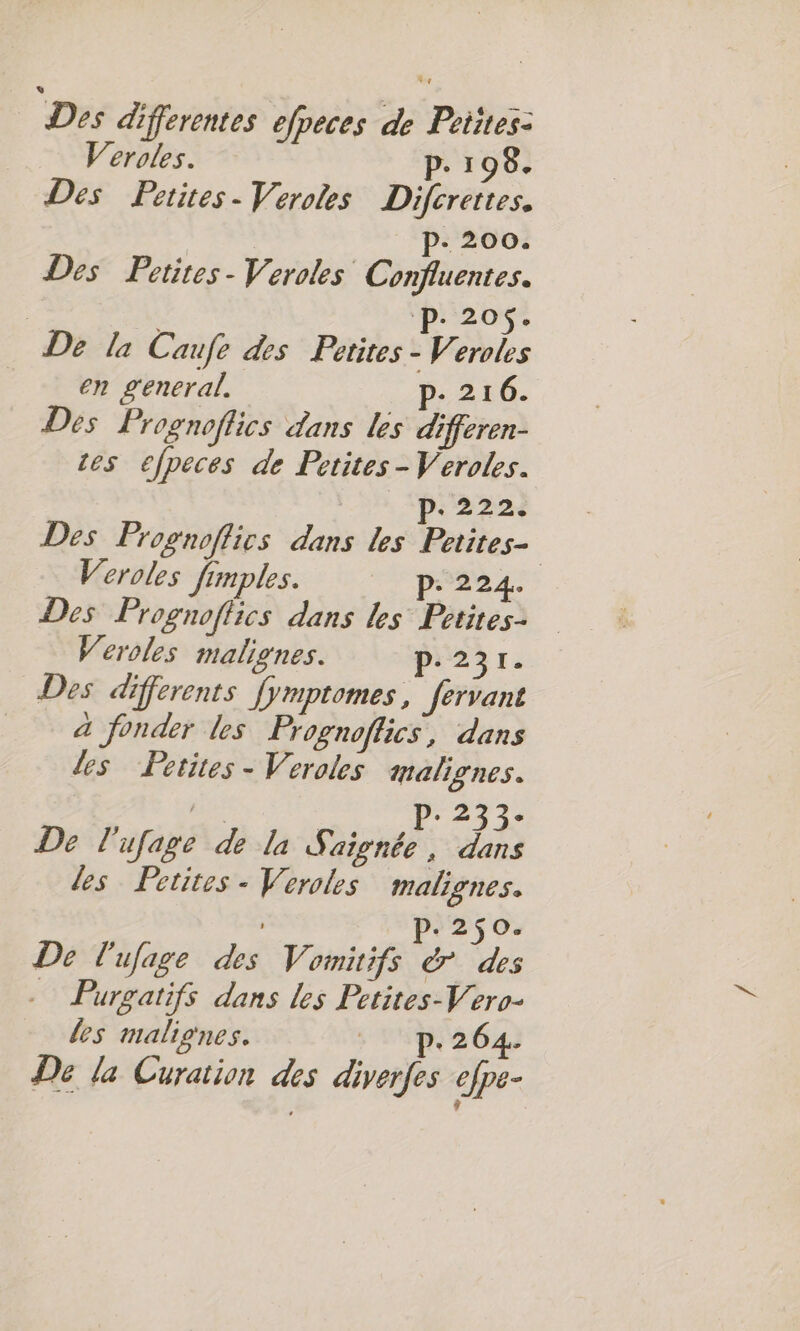 Des differentes eſpeces de Petites-
Veroles. p. 198.
Des Petites-Veroles Diſcrettes.
p. 200.
Des Petites-Veroles Confluentes.
p. 205.
De la Cauſe des Petites-Veroles
en general. p. 216.
Des Prognoſtics dans les differen-
tes eſpeces de Petites-Veroles.
p. 222.
Des Prognoſtics dans les Petites-
Veroles ſimples. p. 224.
Des Prognoſtics dans les Petites-
Veroles malignes. p. 231.
Des differents ſymptomes, ſervant
à fonder les Prognoſtics, dans
les Petites-Veroles malignes.
p. 233.
De l'uſage de la Saignée, dans
les Petites-Veroles malignes.
p. 250.
De l'uſage des Vomitifs & des
Purgatifs dans les Petites-Vero-
les malignes. p. 264.
De la Curation des diverſes eſpe-